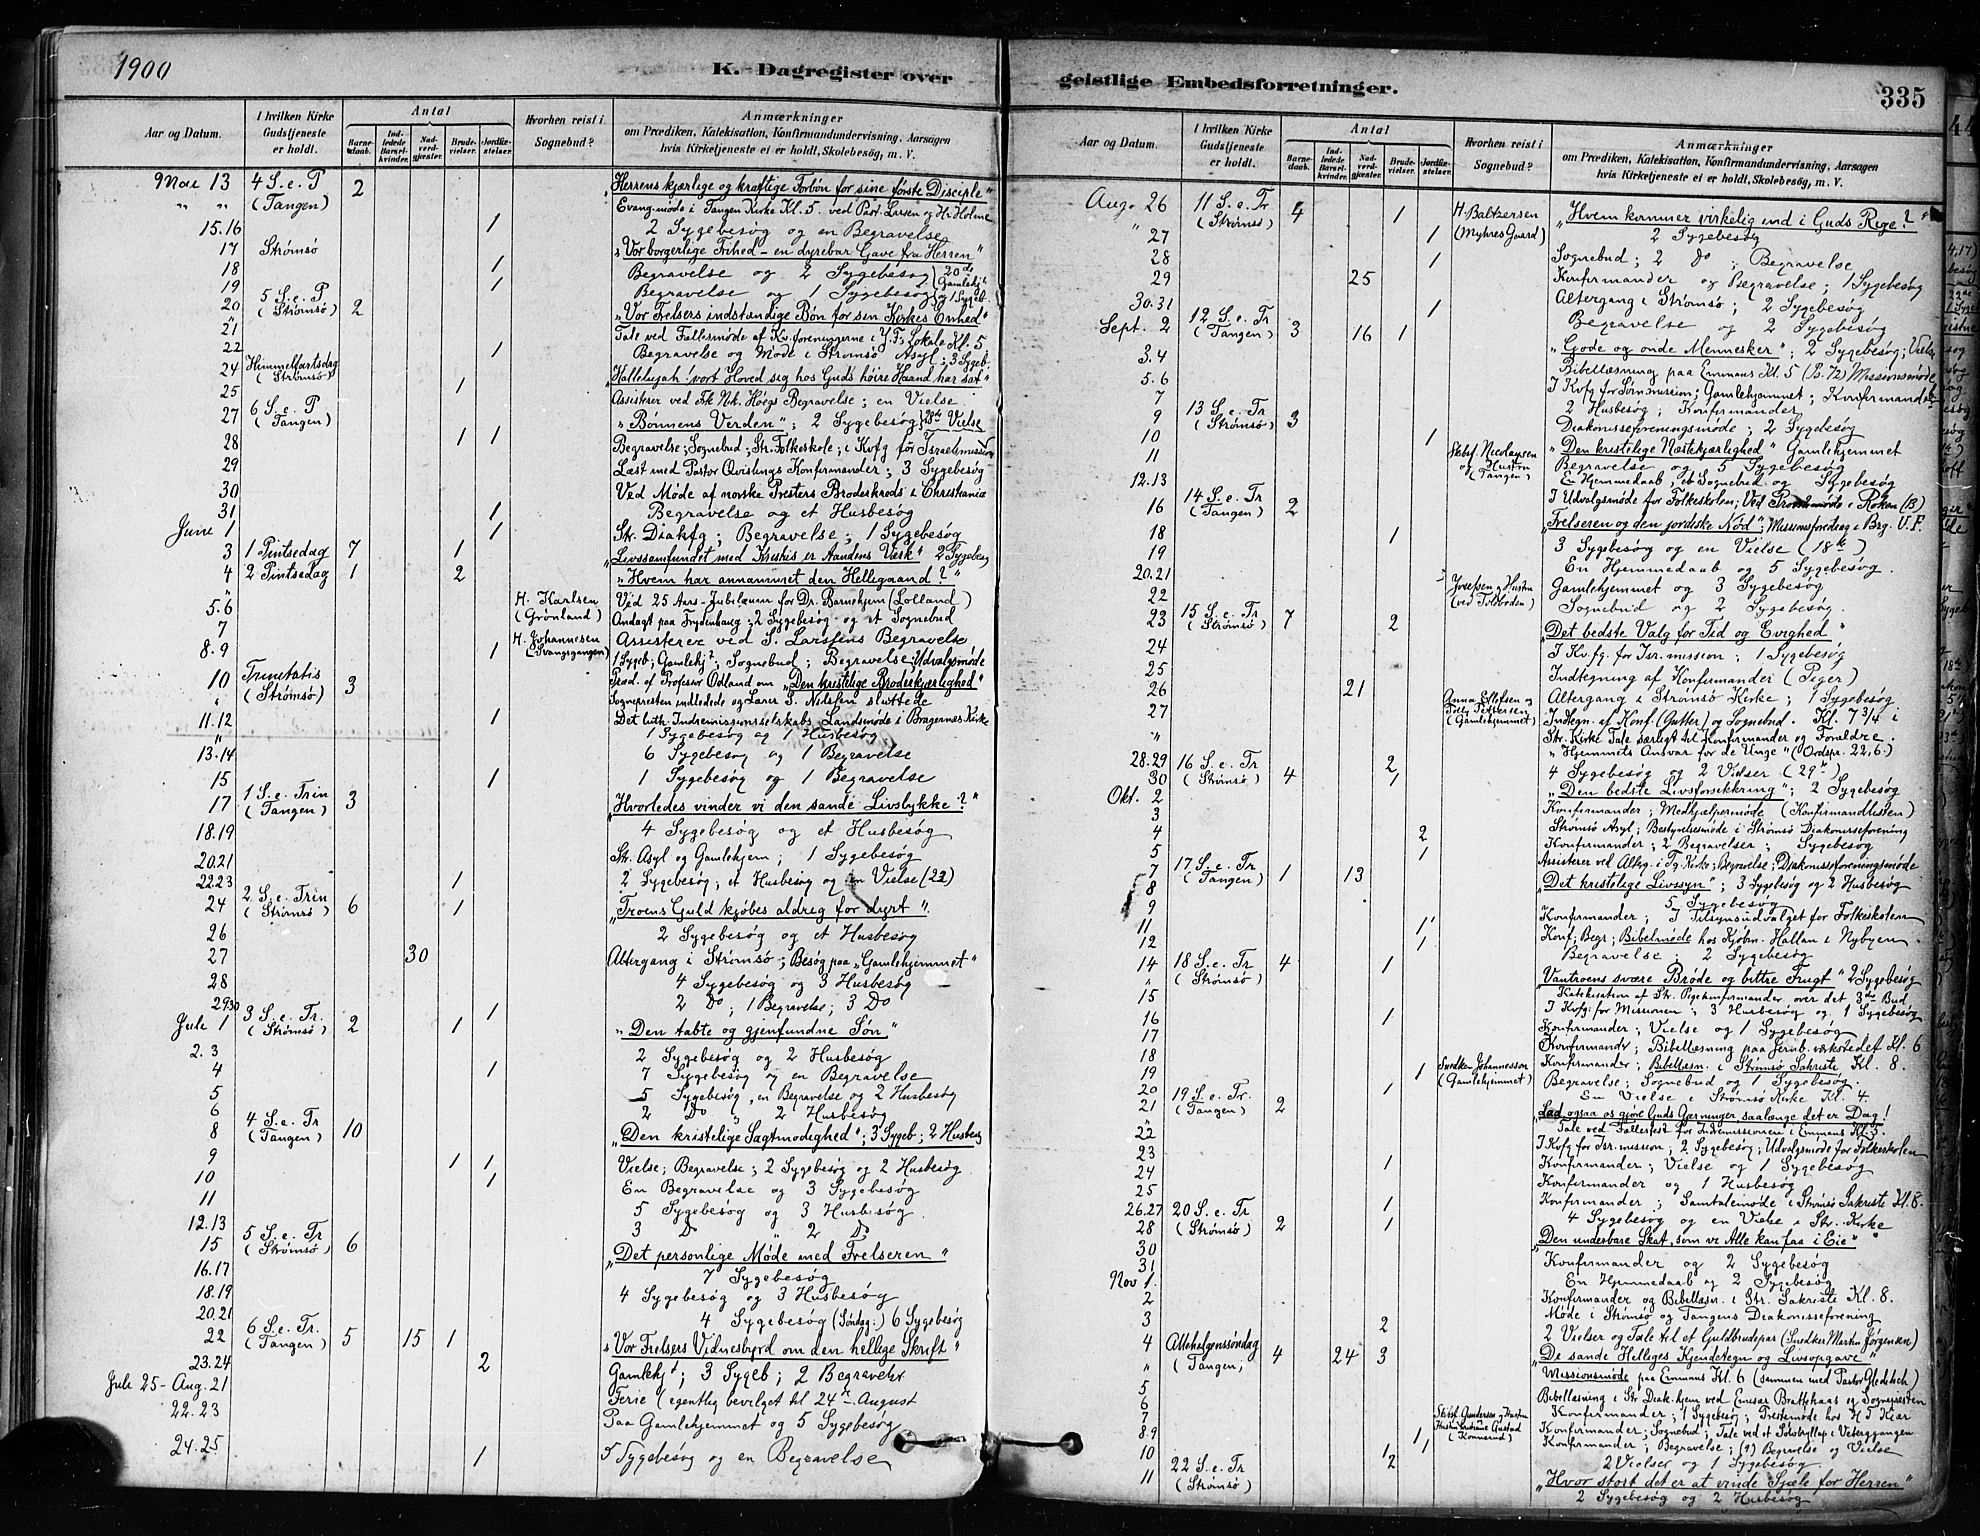 1900
K. Dagregister over
Aar og Datum.
I hvilken Kirke Gudstjeneste er holdt.
Antal
Barnedaab.
Indledede Barselkvinder.
Nadverdgjester.
Brudevielser.
Jordfæstelser.
Hvorhen reist i Sognebud?
Anmærkninger
om Prædiken, Katekisation, Konfirmandundervisning, Aarsagen
hvis Kirketjeneste ei er holdt, Skolebesøg, m. V.
Mai 13 4 S. e. P 2 „Herrens kjærlige og kraftige Forbøn for sine første Disciple"
„ „ (Tangen) Evang.møde i Tangen Kirke Kl. 5. ved Past. Larsen og H. Holme
15.16 1 2 Sygebesøg og en Begravelse
17 Strømsø „Vor borgerlige Frihed - en dyrebar Gave fra Herren"
18 1 Begravelse og 2 Sygebesøg
19 1 Begravelse og 1 Sygebesøg
20 5 S. e. P (Strømsø) 2 „Vor Frelsers indstændige Bøn for sin Kirkes Enhed"
21 Tale ved Fællesmøde af Kv.foreningerne i J. F's Lokale Kl. 5
22 1 Begravelse og Møde i Strømsø Asyl; 3 Sygeb.
24 Himmelfartsdag (Strømsø) „Hallelujah! vort Hoved sig hos Guds høire Haand har sat"
25 1 Assisterer ved Nik. Höegs Begravelse; en Vielse
27 6 S. e. P (Tangen) „Bønnens Verden"; 2 Sygebesøg 28de Vielse
28 1 1 Begravelse; Sognebud; Str. Folkeskole; i Kvfg for Israelsmission
29 Læst med Pastor Qvislings Konfirmander; 3 Sygebesøg
30 Ved Møde af norske Presters Broderkreds i Christiania
31 1 Begravelse og et Husbesøg
Juni 1 1 Str. Diakfg; Begravelse; 1 Sygebesøg
3 1 Pintsedag 7 1 „Livssamfundet med Kristus er Aandens Værk" 2 Sygebesøg
4 2 Pintsedag 1 2 „Hvem har annammet den Helligaand?"
5.6 H. Karlsen (Grønland) Ved 25 Aars-Jubilæum for Dr. Barnehjem (Lolland)
7 Andagt paa Frydenhaug; 2 Sygebesøg og et Sognebud
8.9 1 H. Johannesen (Svangsgangen) Assisterer ved S. Larssens Begravelse
1 Sygeb; Gamlehj; Sognebud; Begravelse; Udvalgsmøde
10 Trinitatis (Strømsø) 3 Præd. af Profesor Odland om „Den kristelige Broderkjærlighed"
Sognepresten indledede og Lærer S. Nilssen sluttede
11.12 1 Det luth. Indremissionsselskabs Landsmøde i Bragernæs Kirke
1 Sygebesøg og 1 Husbesøg
13.14 6 Sygebesøg og 1 Begravelse
15 1 1 Sygebesøg og 1 Begravelse
17 1 S. e. Trin (Tangen) 3 „Hvorledes vinder vi den sande Livslykke?"
18.19 4 Sygebesøg og et Husbesøg
20.21 Str. Asyl og Gamlehjem; 1 Sygebesøg
22.23 1 2 Sygebesøg; et Husbesøg og en Vielse (23)
24 2 S. e. Trin (Strømsø) 6 1 „Troens Guld kjøbes aldrig for dyrt"
26 2 Sygebesøg og et Husbesøg
27 30 Altergang i Strømsø; Besøg paa „Gamlehjemmet"
28 4 Sygebesøg og 3 Husbesøg
29.30 1 2 Do; 1 Begravelse; 3 Do
Juli 1 3 S. e. Tr. (Strømsø) 2 1 „Den tabte og gjenfundne Søn"
2.3 2 Sygebesøg og 2 Husbesøg
4 1 7 Sygebesøg og en Begravelse
5 5 Sygebesøg, en Begravelse og 2 Husbesøg
6 2 Do „ 2 Husbesøg
8 4 S. e. Tr (Tangen) 10 „Den kristelige Sagtmodighed"; 3 Sygeb; 2 Husbesøg
9 1 1 Vielse; Begravelse; 2 Sygebesøg og 2 Husbesøg
10 1 En Begravelse og 3 Sygebesøg
11 5 Sygebesøg og 3 Husbesøg
12.13 3 Do „ 2 Do
15 5 S. e. Tr (Strømsø) 6 „Det personlige Møde med Frelseren"
16.17 7 Sygebesøg
18.19 4 Sygebesøg og 3 Husbesøg
20.21 4 Sygebesøg (Söndag:) 6 Sygebesøg
22 6 S. e. Tr. (Tangen) 5 15 1 „Vor Frelsers Vidnesbyrd om den hellige Skrift"
23.24 2 Gamlehj; 3 Sygeb; 2 Begravelser
Juli 25 - Aug. 21 Ferie (egentlig bevilget til 24 August
22.23 Paa Gamlehjemmet og 5 Sygebesøg
24.25 1 5 Sygebesøg og en Begravelse
geistlige Embedsforretninger.
335
Aar og Datum.
I hvilken Kirke Gudstjeneste er holdt.
Antal
Barnedaab.
Indledede Barselkvinder.
Nadverdgjester.
Brudevielser.
Jordfæstelser.
Hvorhen reist i Sognebud?
Anmærkninger
om Prædiken, Katekisation, Konfirmandundervisning, Aarsagen
hvis Kirketjeneste ei er holdt, Skolebesøg, m. V.
Aug. 26 11 S. e. Tr (Strømsø) 4 1 H. Baltzersen (Myhres Gaard) „Hvem kommer virkelig ind i Guds Rige?"
„ 2 Sygebesøg
27 1 Sognebud; 2 Do; Begravelse
28 1 Konfirmander og Begravelse; 1 Sygebesøg
29 25 Altergang i Strømsø; 2 Sygebesøg
30.31 1 Begravelse og 2 Sygebesøg
Sept. 2 12 S. e. Tr (Tangen) 3 16 1 „Gode og onde Mennesker"; 2 Sygebesøg; Vielse
3.4 Bibellæsning paa Emmaus Kl. 5 (B. 72) Missionsmøde
5.6 I Kvfg for Sømmission; Gamlehjemmet; Konfirmander
7 2 Husbesøg; Konfirmander
Diakonisseforeningsmøde; 2 Sygebesøg
9 13 S. e. Tr (Strømsø) 3 „Den kristelige Næstekjærlighed" Gamlehjemmet
10 1 Begravelse og 5 Sygebesøg
11 Nicolaysen og Hustru (Tangen) En Hjemmedaab, et Sognebud og Sygebesøg
12.13 I Udvalgsmøde for Folkeskolen; Ved Provstimøde i Røken (13)
16 14 S. e. Tr (Tangen) 2 „Frelseren og den jordiske Nød"; Missionsforedrag i Brg. U. F.
18 1 3 Sygebesøg og en Vielse (18de)
19 En Hjemmedaab og 5 Sygebesøg
20.21 Gamlehjemmet og 3 Sygebesøg
22 Josefsen og Hustru (ved Toldboden) Sognebud og 2 Sygebesøg
23 15 S. e. Tr (Strømsø) 7 2 „Det bedste Valg for Tid og Evighed"
24 I Kvfg. for Isr. mission; 1 Sygebesøg
25 Indtegning af Konfirmander (Piger)
26 21 Altergang i Strømsø Kirke; 1 Sygebesøg
27 Anna Ellefsen og Pettersen (Gamlehjemmet) Indtegn. af Konf. (Gutter) og Sognebud. Kl. 7 3/4 i
„ Str. Kirke Tale særligt til Konfirmander og Forældre.
„Hjemmets Ansvar for de Unge" (Ordspr. 22,6.)
28.29 2 4 Sygebesøg og 2 Vielser (29de)
30 16 S. e. Tr (Strømsø) 4 1 „Den bedste Livsforsikkring"; 2 Sygebesøg
Okt. 2 Konfirmander; Medhjælpermøde (Konfirmandlisten)
3 Strømsø Asyl; Bestyrelsesmøde i Strømsø Diakonisseforening
4 2 Konfirmander; 2 Begravelser; Sygebesøg
5 1 Assisterer ved Alterg. i Tg. Kirke; Begravelse; Diakonisseforeningsmøde
7 17 S. e. Tr (Tangen) 1 13 „Det kristelige Livssyn"; 3 Sygebesøg og 2 Husbesøg
8 5 Sygebesøg
9 Konfirmander; I Tilsynsudvalget for Folkeskolen
11 1 Konf; Begr; Bibelmøde hos Kjøbm. Hallan i Nybyen
12 1 Begravelse; 2 Sygebesøg
14 18 S. e. Tr (Strømsø) 4 1 „Vantroens svære Brøde og bittre Frugt" 2 Sygebesøg
„ Katekisation af Str. Pigekonfirmander, over det 3die Bud
15 I Kvfg. for Missionen; 3 Husbesøg og 1 Sygebesøg
16 1 Konfirmander; Vielse og 1 Sygebesøg
17 Konfirmandr; Bibellæsning paa Jernb. værkstedet Kl. 6
18 Konfirmander; Bibellæsn. i Strømsø Sakristi Kl. 8.
19 1 Snedker Johannessen (Gamlehjemmet) Begravelse; Sognebud og 1 Sygebesøg
20 1 En Vielse i Strømsø Kirke Kl. 4.
21 19 S. e. Tr. (Tangen) 2 „Lad ogsaa os gjøre Guds Gjerninger, saalænge det er Dag!
„ Tale ved Fællesfest for Indremissionen i Emmaus Kl. 5
22 I Kvfg for Isr. mission; 2 Sygebesøg; Udvalgsmøde for Folkeskolen
23 1 Konfirmander; Vielse og 1 Sygebesøg
24 Konfirmander og 1 Husbesøg
25 Konfirmander; Samtalemøde i Strømsø Sakristi Kl. 8.
26.27 1 4 Sygebesøg og en Vielse i Str. Kirke
28 20 S. e. Tr (Strømsø) 2 1 „Den underbare Skat, som vi Alle kan faa i Eie"
30 Konfirmander og 2 Sygebesøg
31 En Hjemmedaab og 2 Sygebesøg
Nov 1. Konfirmander og Bibellæsn. i Str. Sakristi Kl. 8.
2 Møde i Strømsø og Tangens Diakonisseforening
3 2 2 Vielser og Tale til et Guldbrudepar (Snedker Martin Jørgensen)
4 Allehelgenssöndag (Tangen) 4 24 3 „De sande Helliges Kjendetegn og Livsopgave"
„ Missionsmøde paa Emmaus Kl. 6 (sammen med Pastor Gleditsch)
5 Bibellæsning i Str Diak.hjem ved Emissær Brattehaas og Sognepresten
6 Konfirmander; 1 Sygebesøg; Prestemøde hos H. T. Kiær
7 Gundersen og Hustru (Konnerud) Konfirmander; Sognebud; Tale ved et Sølvbryllup i Vetergangen
8.9 1 Konfirmander; Begravelse; (9) Begravelse og Vielse
10 2 2 Vielser og 1 Sygebesøg
11 22 S. e. Tr (Strømsø) „Hvor stort det er at vinde Sjæle for Herren"
2 Sygebesøg og 2 Husbesøg